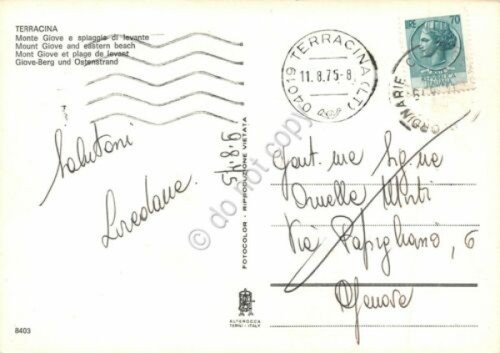 TERRACINA
Monte Giove e spiaggia di levante
Mount Giove and eastern beach
Mont Giove et plage de levant
Giove-Berg und Ostenstrand
04019 TERRACINA (LT)
11.8.75-8
LIRE 70
ORDINARIE
Salutoni
Loredana
9.8.75
Gent.me Sig.ne
Ornella
Via 6
Genova
FOTOCOLOR - RIPRODUZIONE VIETATA
do not copy
ALTEROCCA
TERNI - ITALY
8403